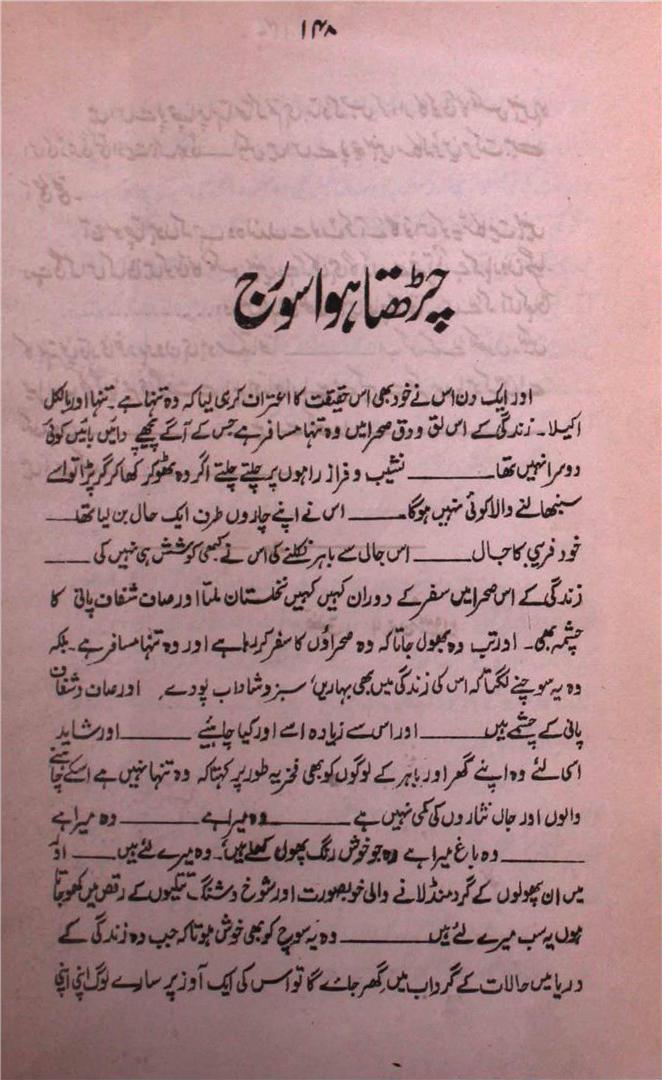 ۱۴۸
چڑھتا ہوا سورج
اور ایک دن اس نے خود بھی اس حقیقت کا اعتراف کر ہی لیا کہ وہ تنہا ہے۔ تنہا اور بالکل
اکیلا۔ زندگی کے اس لق و دق صحرا میں وہ تنہا مسافر ہے جس کے آگے پیچھے دائیں بائیں کوئی
دوسرا نہیں تھا ــــــ نشیب و فراز راہوں پر چلتے چلتے اگر وہ ٹھوکر کھا کر گر پڑا تو اسے
سنبھالنے والا کوئی نہیں ہوگا ــــــ اس نے اپنے چاروں طرف ایک جال بن لیا تھا ــــــ
خود فریبی کا جال ــــــ اس جال سے باہر نکلنے کی اس نے کبھی کوشش ہی نہیں کی ــــــ
زندگی کے اس صحرا میں سفر کے دوران کہیں کہیں نخلستان ملتا اور صاف شفاف پانی کا
چشمہ بھی۔ اور تب وہ بھول جاتا کہ وہ صحراؤں کا سفر کر رہا ہے اور وہ تنہا مسافر ہے۔ بلکہ
وہ یہ سوچنے لگتا کہ اس کی زندگی میں بھی بہاریں، سبز و شاداب پودے، اور صاف و شفاف
پانی کے چشمے ہیں ــــــ اور اس سے زیادہ اسے اور کیا چاہئیے ــــــ اور شاید
اسی لئے وہ اپنے گھر اور باہر کے لوگوں کو بھی فخریہ طور پر کہتا کہ وہ تنہا نہیں ہے اسکے چاہنے
والوں اور جاں نثاروں کی کمی نہیں ہے ــــــ وہ میرا ہے ــــــ وہ میرا ہے
ــــــ وہ باغ میرا ہے وہ جو خوش رنگ پھول کھلے ہیں۔ وہ میرے لئے ہیں ــــــ اور
میں ان پھولوں کے گرد منڈلانے والی خوبصورت اور شوخ و شنگ تتلیوں کے رقص میں کھو جاتا
ہوں یہ سب میرے لئے ہیں ــــــ وہ یہ سوچ کو بھی خوش ہوتا کہ جب وہ زندگی کے
دریا میں حالات کے گرداب میں گھر جائے گا تو اس کی ایک آوز پر سارے لوگ اپنی اپنی